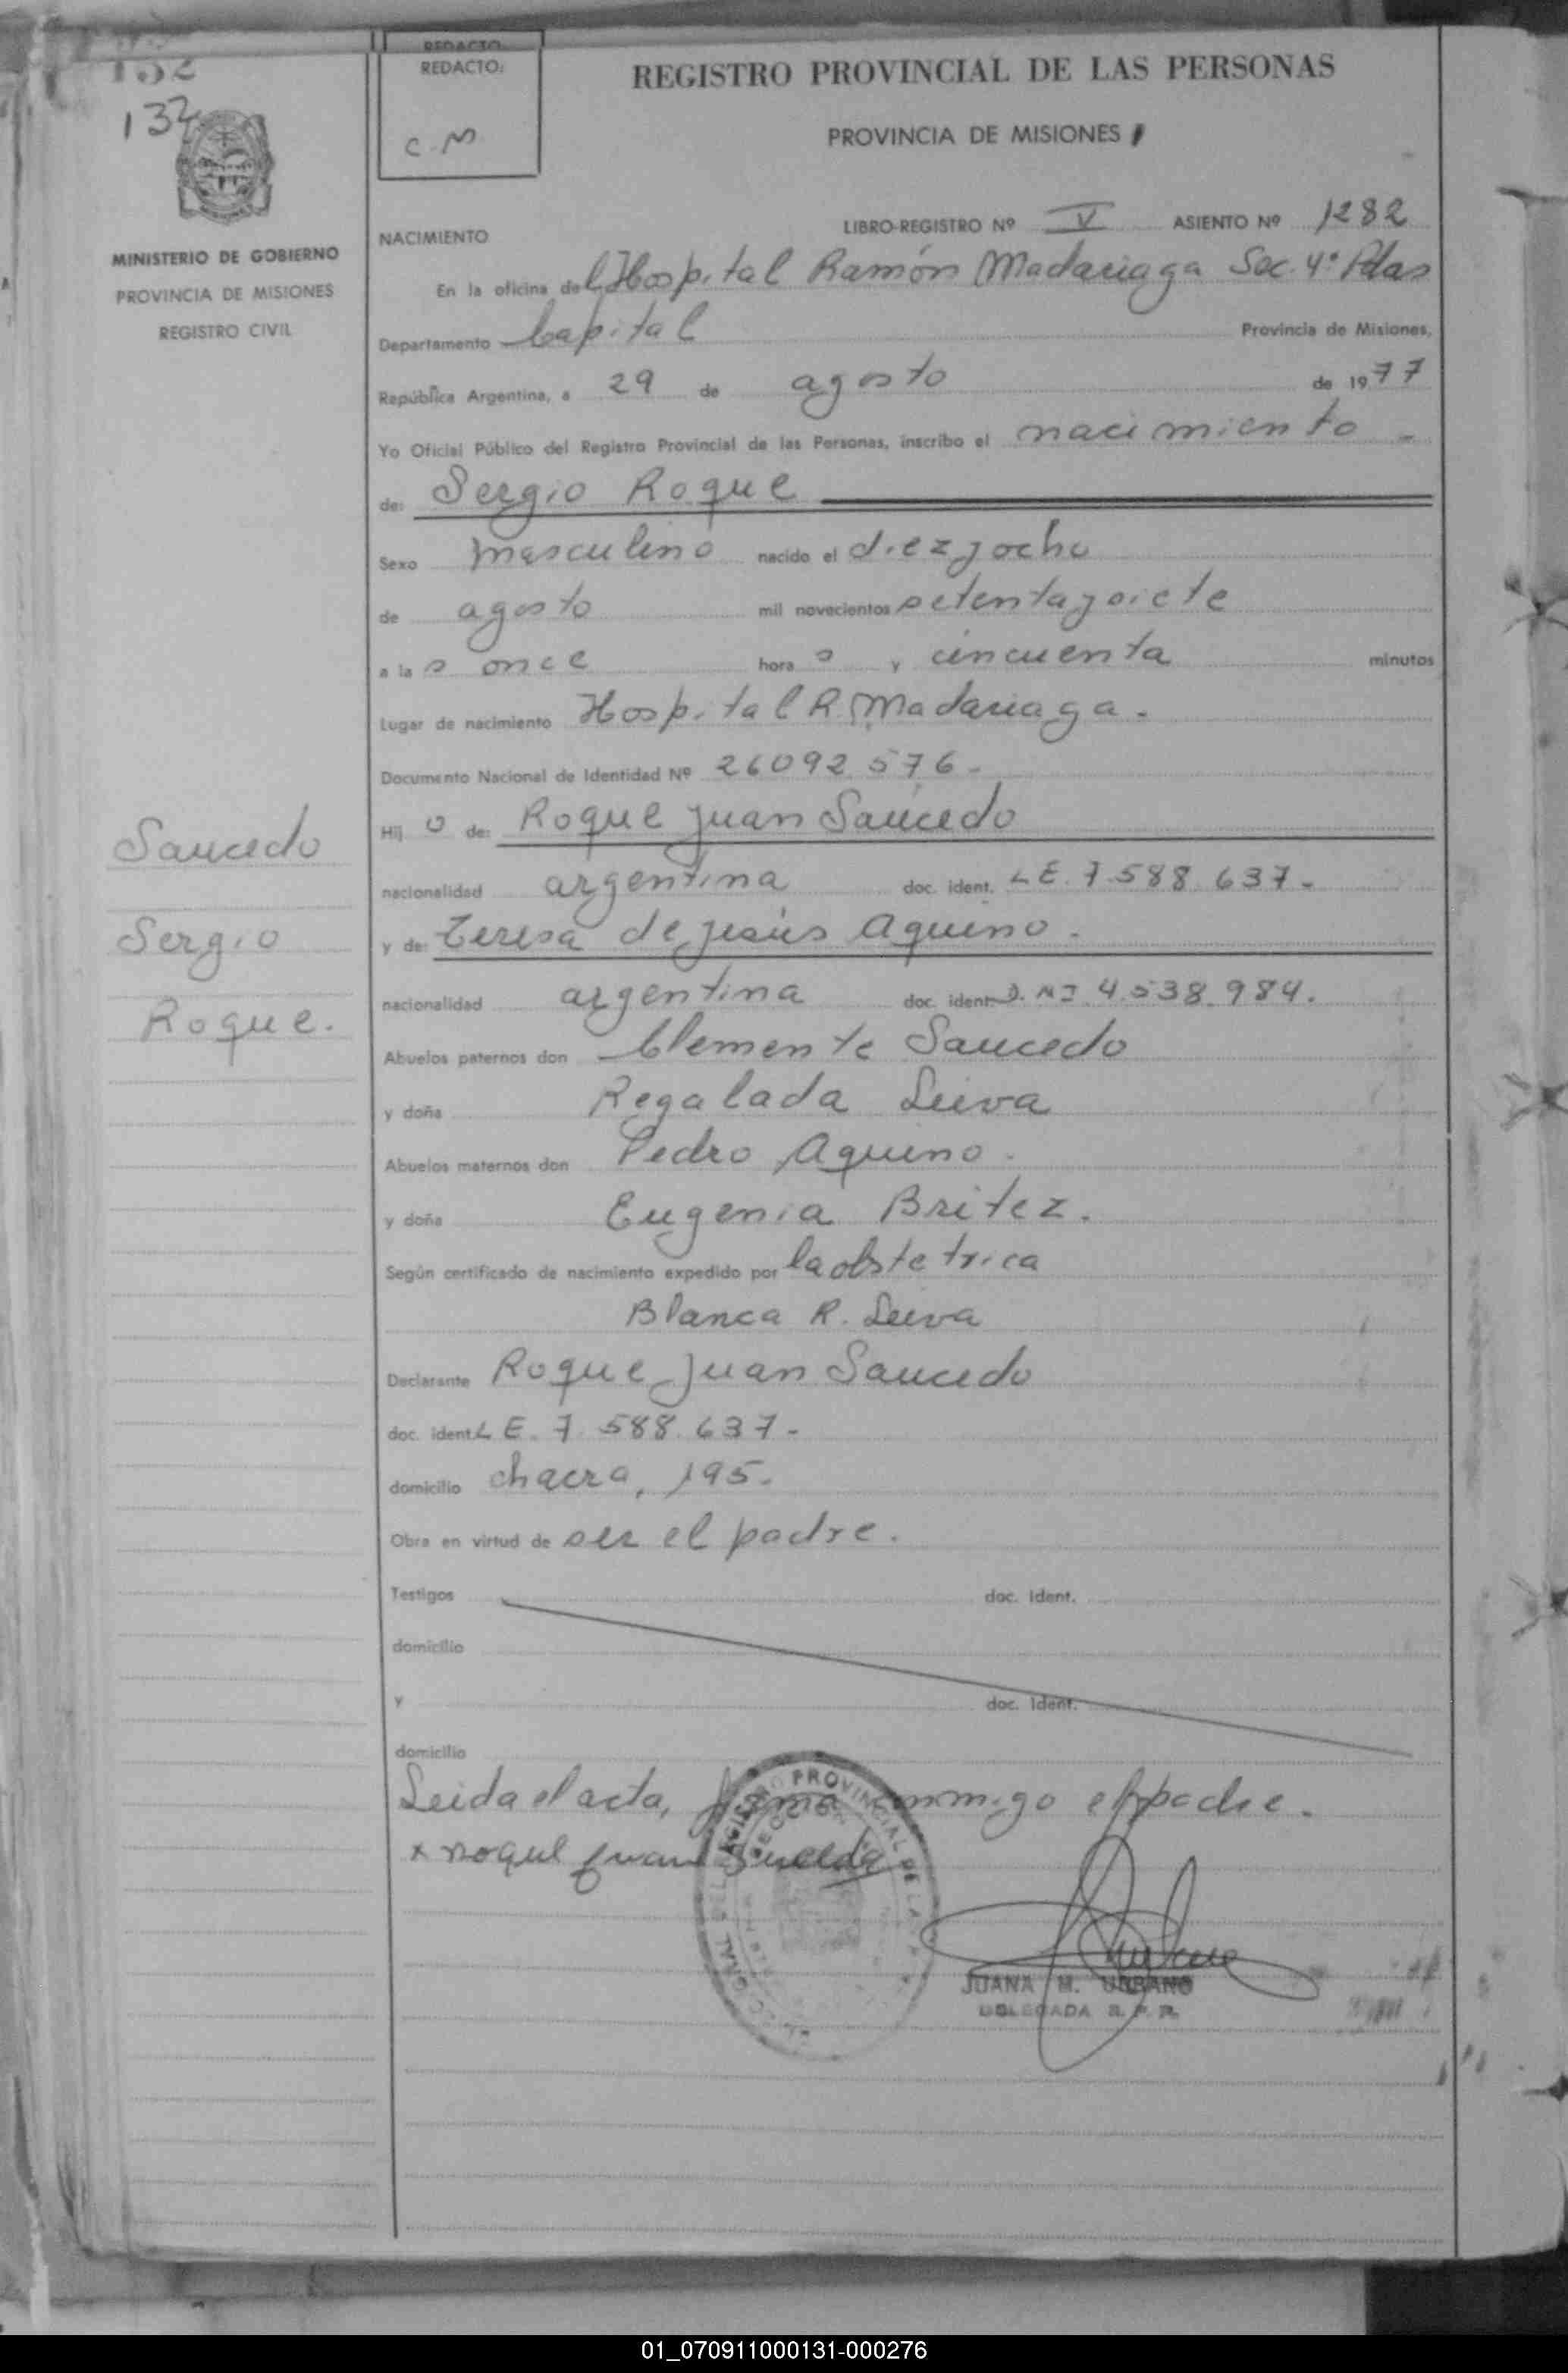 132
132
MINISTERIO DE GOBIERNO
PROVINCIA DE MISIONES
REGISTRO CIVIL
REDACTO:
REDACTO:
C. M.
REGISTRO PROVINCIAL DE LAS PERSONAS
PROVINCIA DE MISIONES
NACIMIENTO
LIBRO-REGISTRO Nº V ASIENTO Nº 1282
En la oficina del Hospital Ramón Madariaga Sec. 4ª Pdas
Departamento Capital Provincia de Misiones,
República Argentina, a 29 de agosto de 1977
Yo Oficial Público del Registro Provincial de las Personas, inscribo el nacimiento -
de: Sergio Roque
Sexo masculino nacido el diezyocho
de agosto mil novecientos setentaysiete
a las once horas y cincuenta minutos
Lugar de nacimiento Hospital R. Madariaga.
Documento Nacional de Identidad Nº 26092.576-
Hijo de: Roque Juan Saucedo
nacionalidad argentina doc. ident. LE. 7.588.637-
y de: Teresa de Jesús Aquino.
nacionalidad argentina doc. ident D.NI 4.538.984.
Abuelos paternos don Clemente Saucedo
y doña Regalada Leiva
Abuelos maternos don Pedro Aquino.
y doña Eugenia Britez.
Según certificado de nacimiento expedido por la obstetrica
Blanca R. Leiva
Declarante Roque Juan Saucedo
doc. ident LE. 7.588.637-
domicilio chacra, 195.
Obra en virtud de ser el padre.
Testigos doc. ident.
domicilio
y doc. ident.
domicilio
Leida el acta, firma conmigo el padre.
x Roque Juan
JUANA M. URBANO
DELEGADA R. P. P.
Saucedo
Sergio
Roque.
01_070911000131-000276